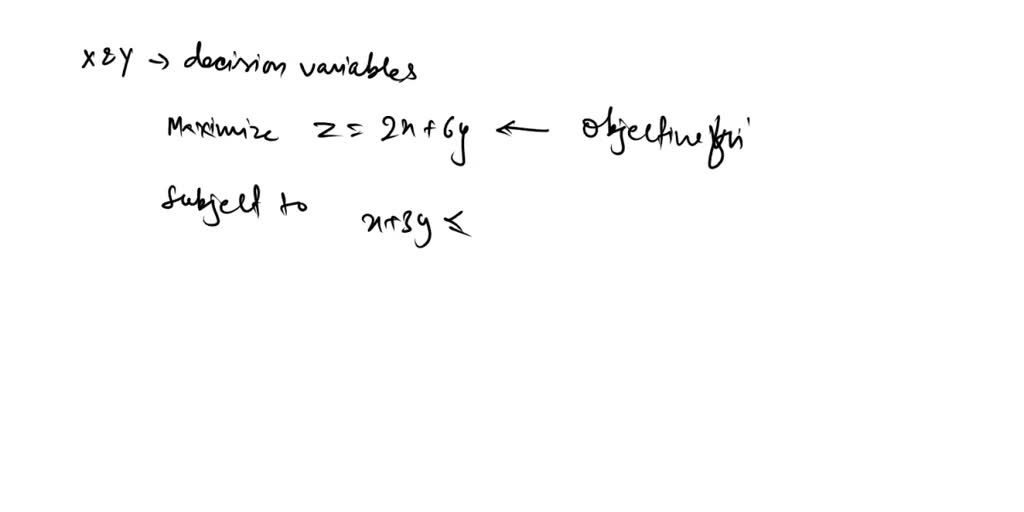 x & y → decision variables
Maximize z = 2x + 6y ← Objective fn
Subject to x + 3y ≤